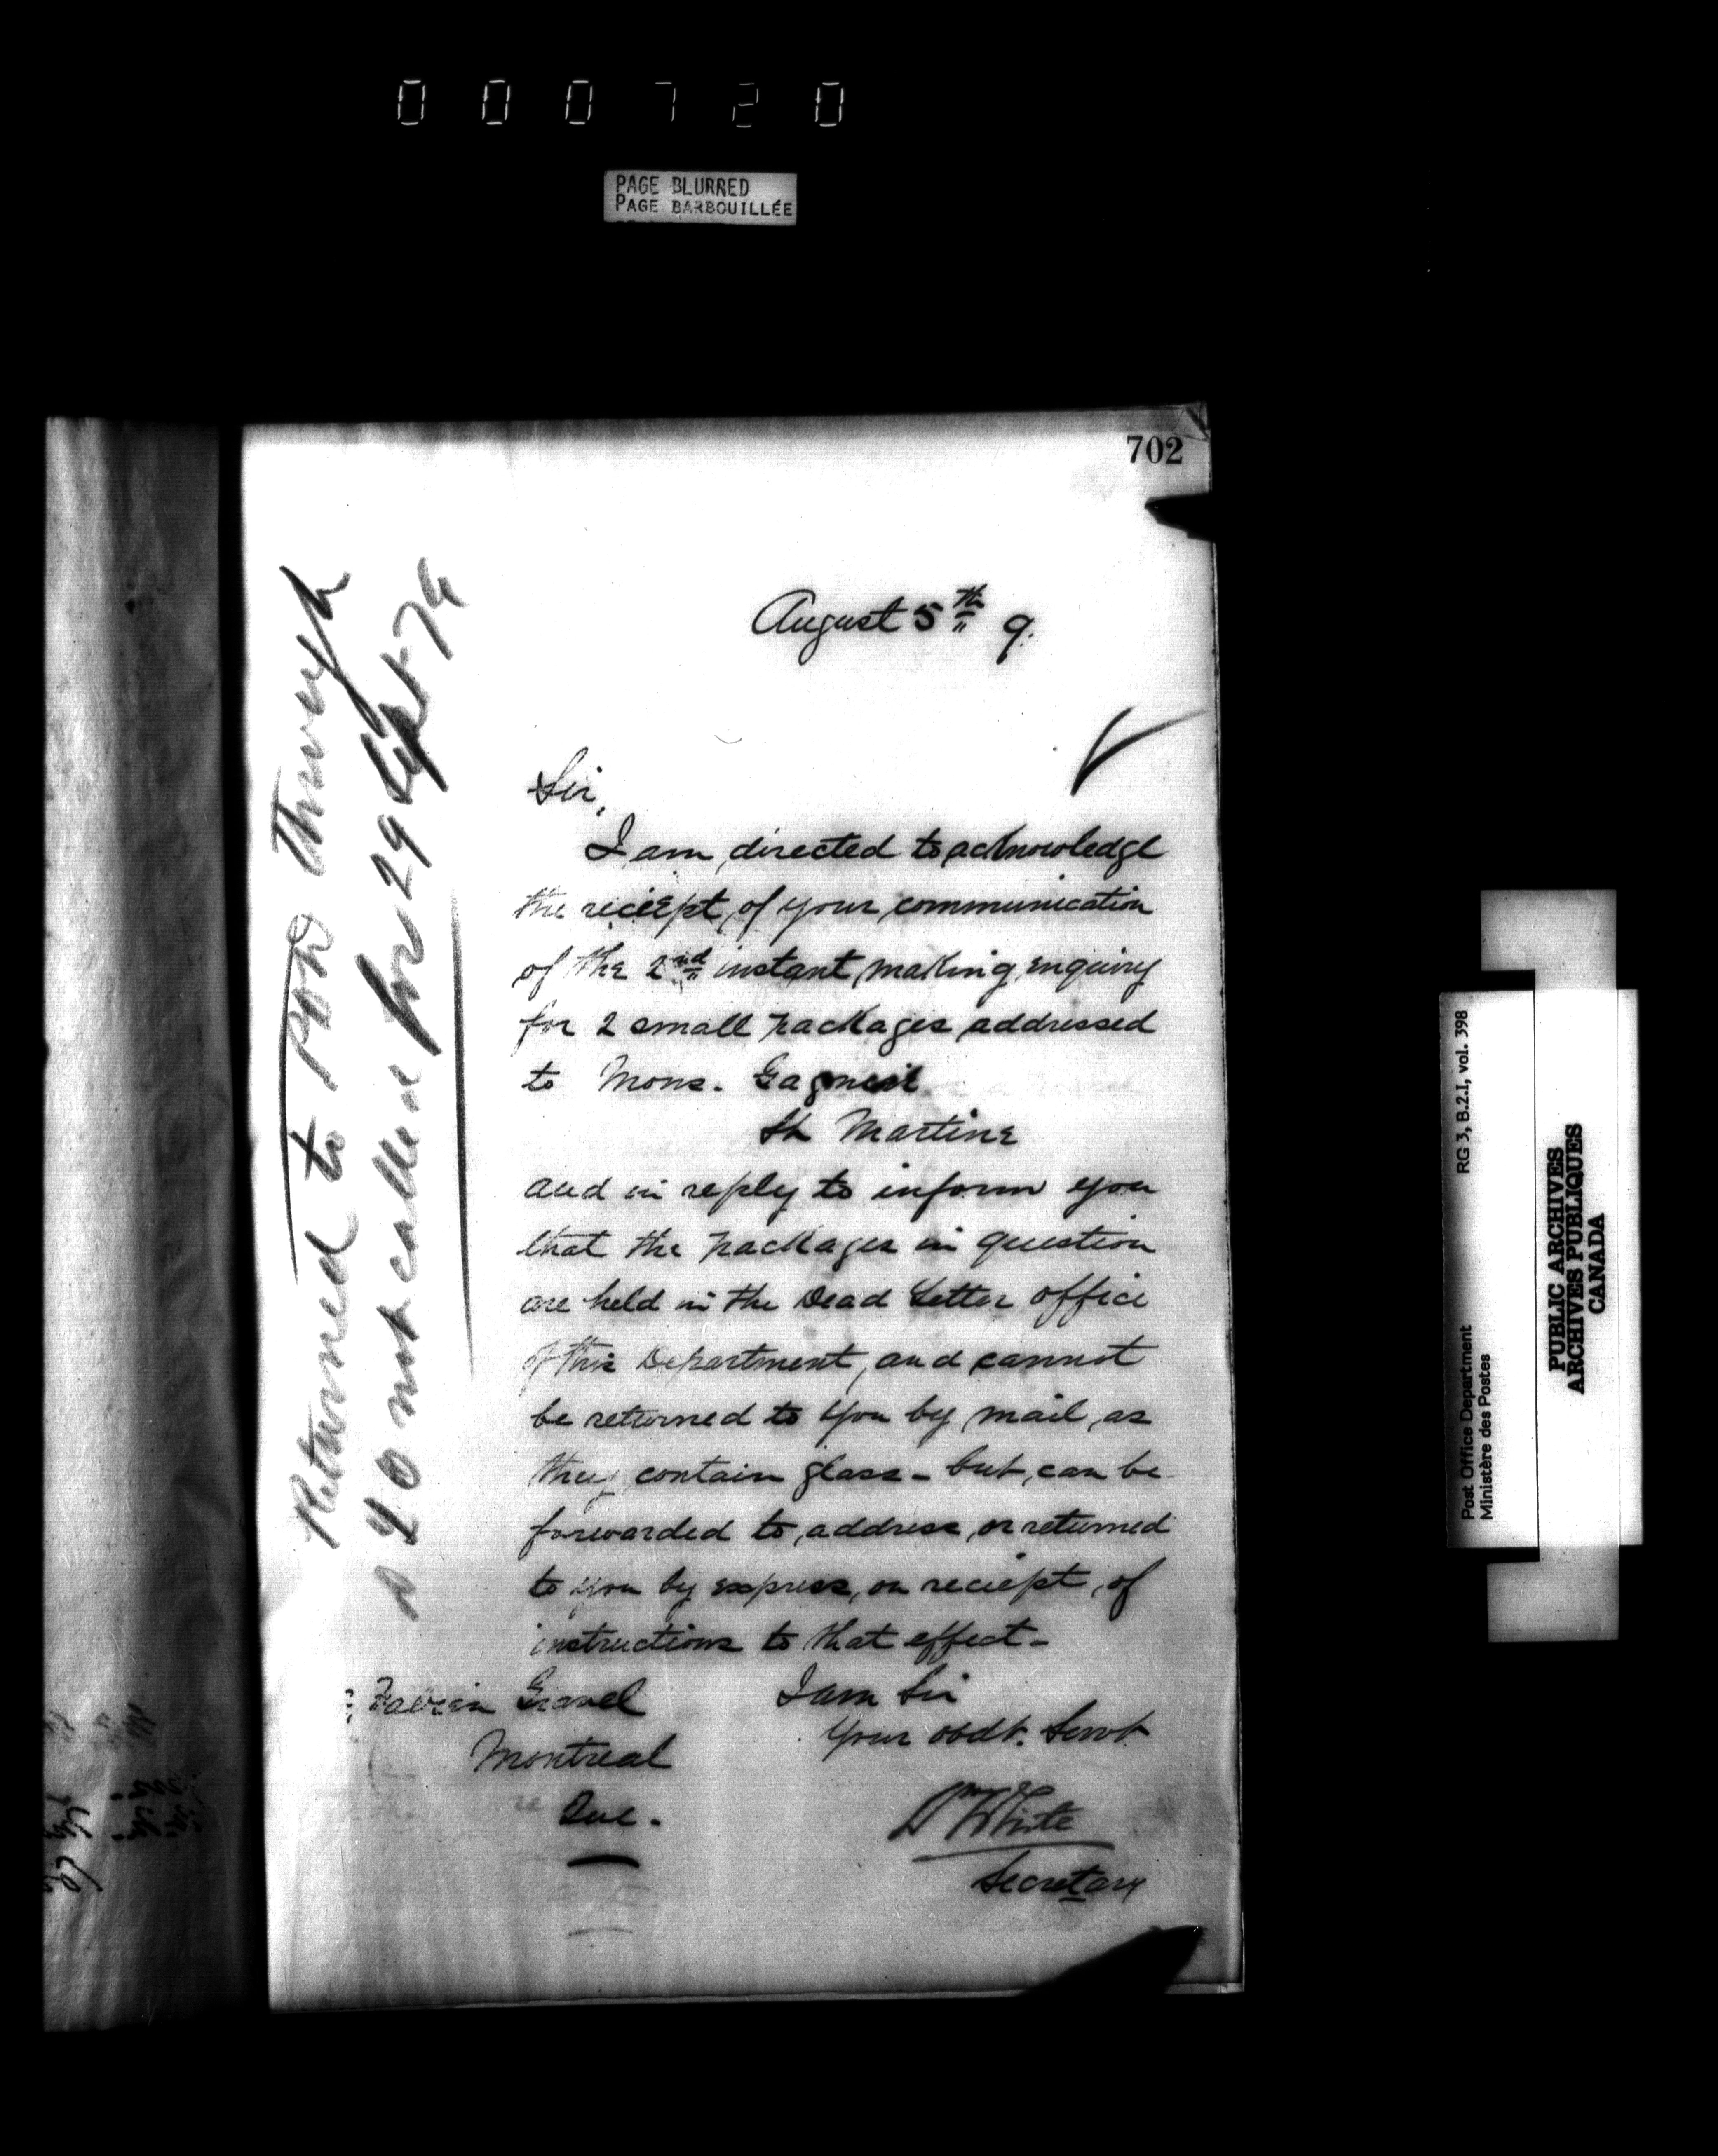 000720
PAGE BLURRED
PAGE BARBOUILLÉE
702
August 5th 9.
Sir,
I am directed to acknowledge
the reciept of your communication
of the 2nd instant making enquiry
for 2 small packages addressed
to Mons. Gagnier
St Martine
and in reply to inform you
that the packages in question
are held in the Dead Letter office
of this Department, and cannot
be returned to you by mail, as
they contain glass - but can be
forwarded to address, or returned
to you by express, on reciept of
instructions to that effect -
I am Sir
Your obdt. Servt
White
Secretary
Gravel
Montreal
Que.
Returned to through
not called for 29 Sept 79
Post Office Department RG 3, B.2.I, vol. 398
Ministère des Postes
PUBLIC ARCHIVES
ARCHIVES PUBLIQUES
CANADA